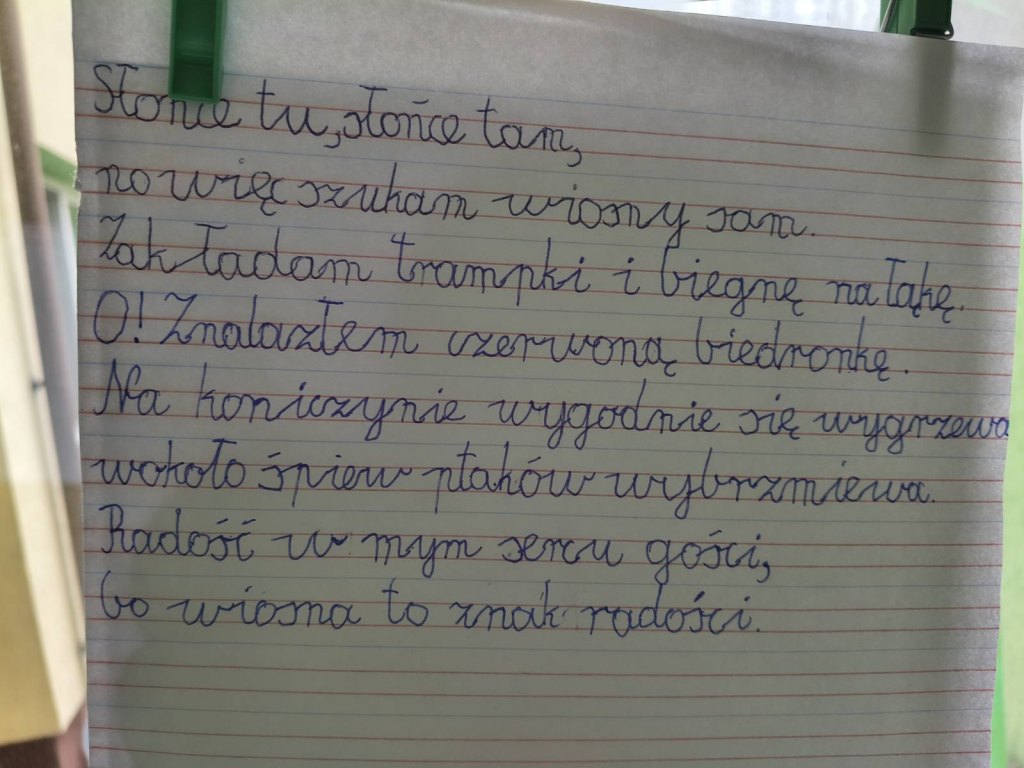 Słońce tu, słońce tam,
no więc szukam wiosny sam.
Zakładam trampki i biegnę na łąkę.
O! Znalazłem czerwoną biedronkę.
Na koniczynie wygodnie się wygrzewa
wokoło śpiew ptaków wybrzmiewa.
Radość w mym sercu gości,
bo wiosna to znak radości.